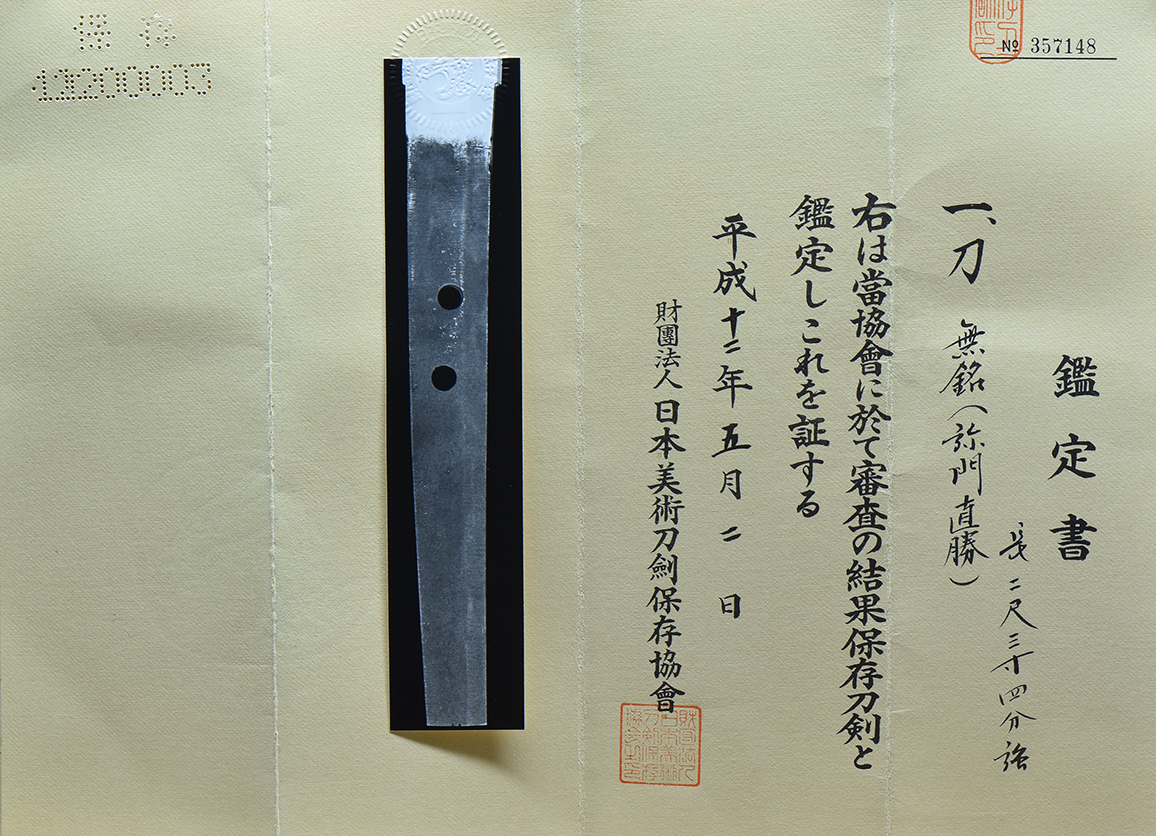 № 357148
鑑定書
長二尺三寸四分強
一、刀 無銘(弥門直勝)
右は當協會に於て審査の結果保存刀剣と
鑑定しこれを証する
平成十二年五月二日
財團法人日本美術刀劍保存協會
保存
12200003